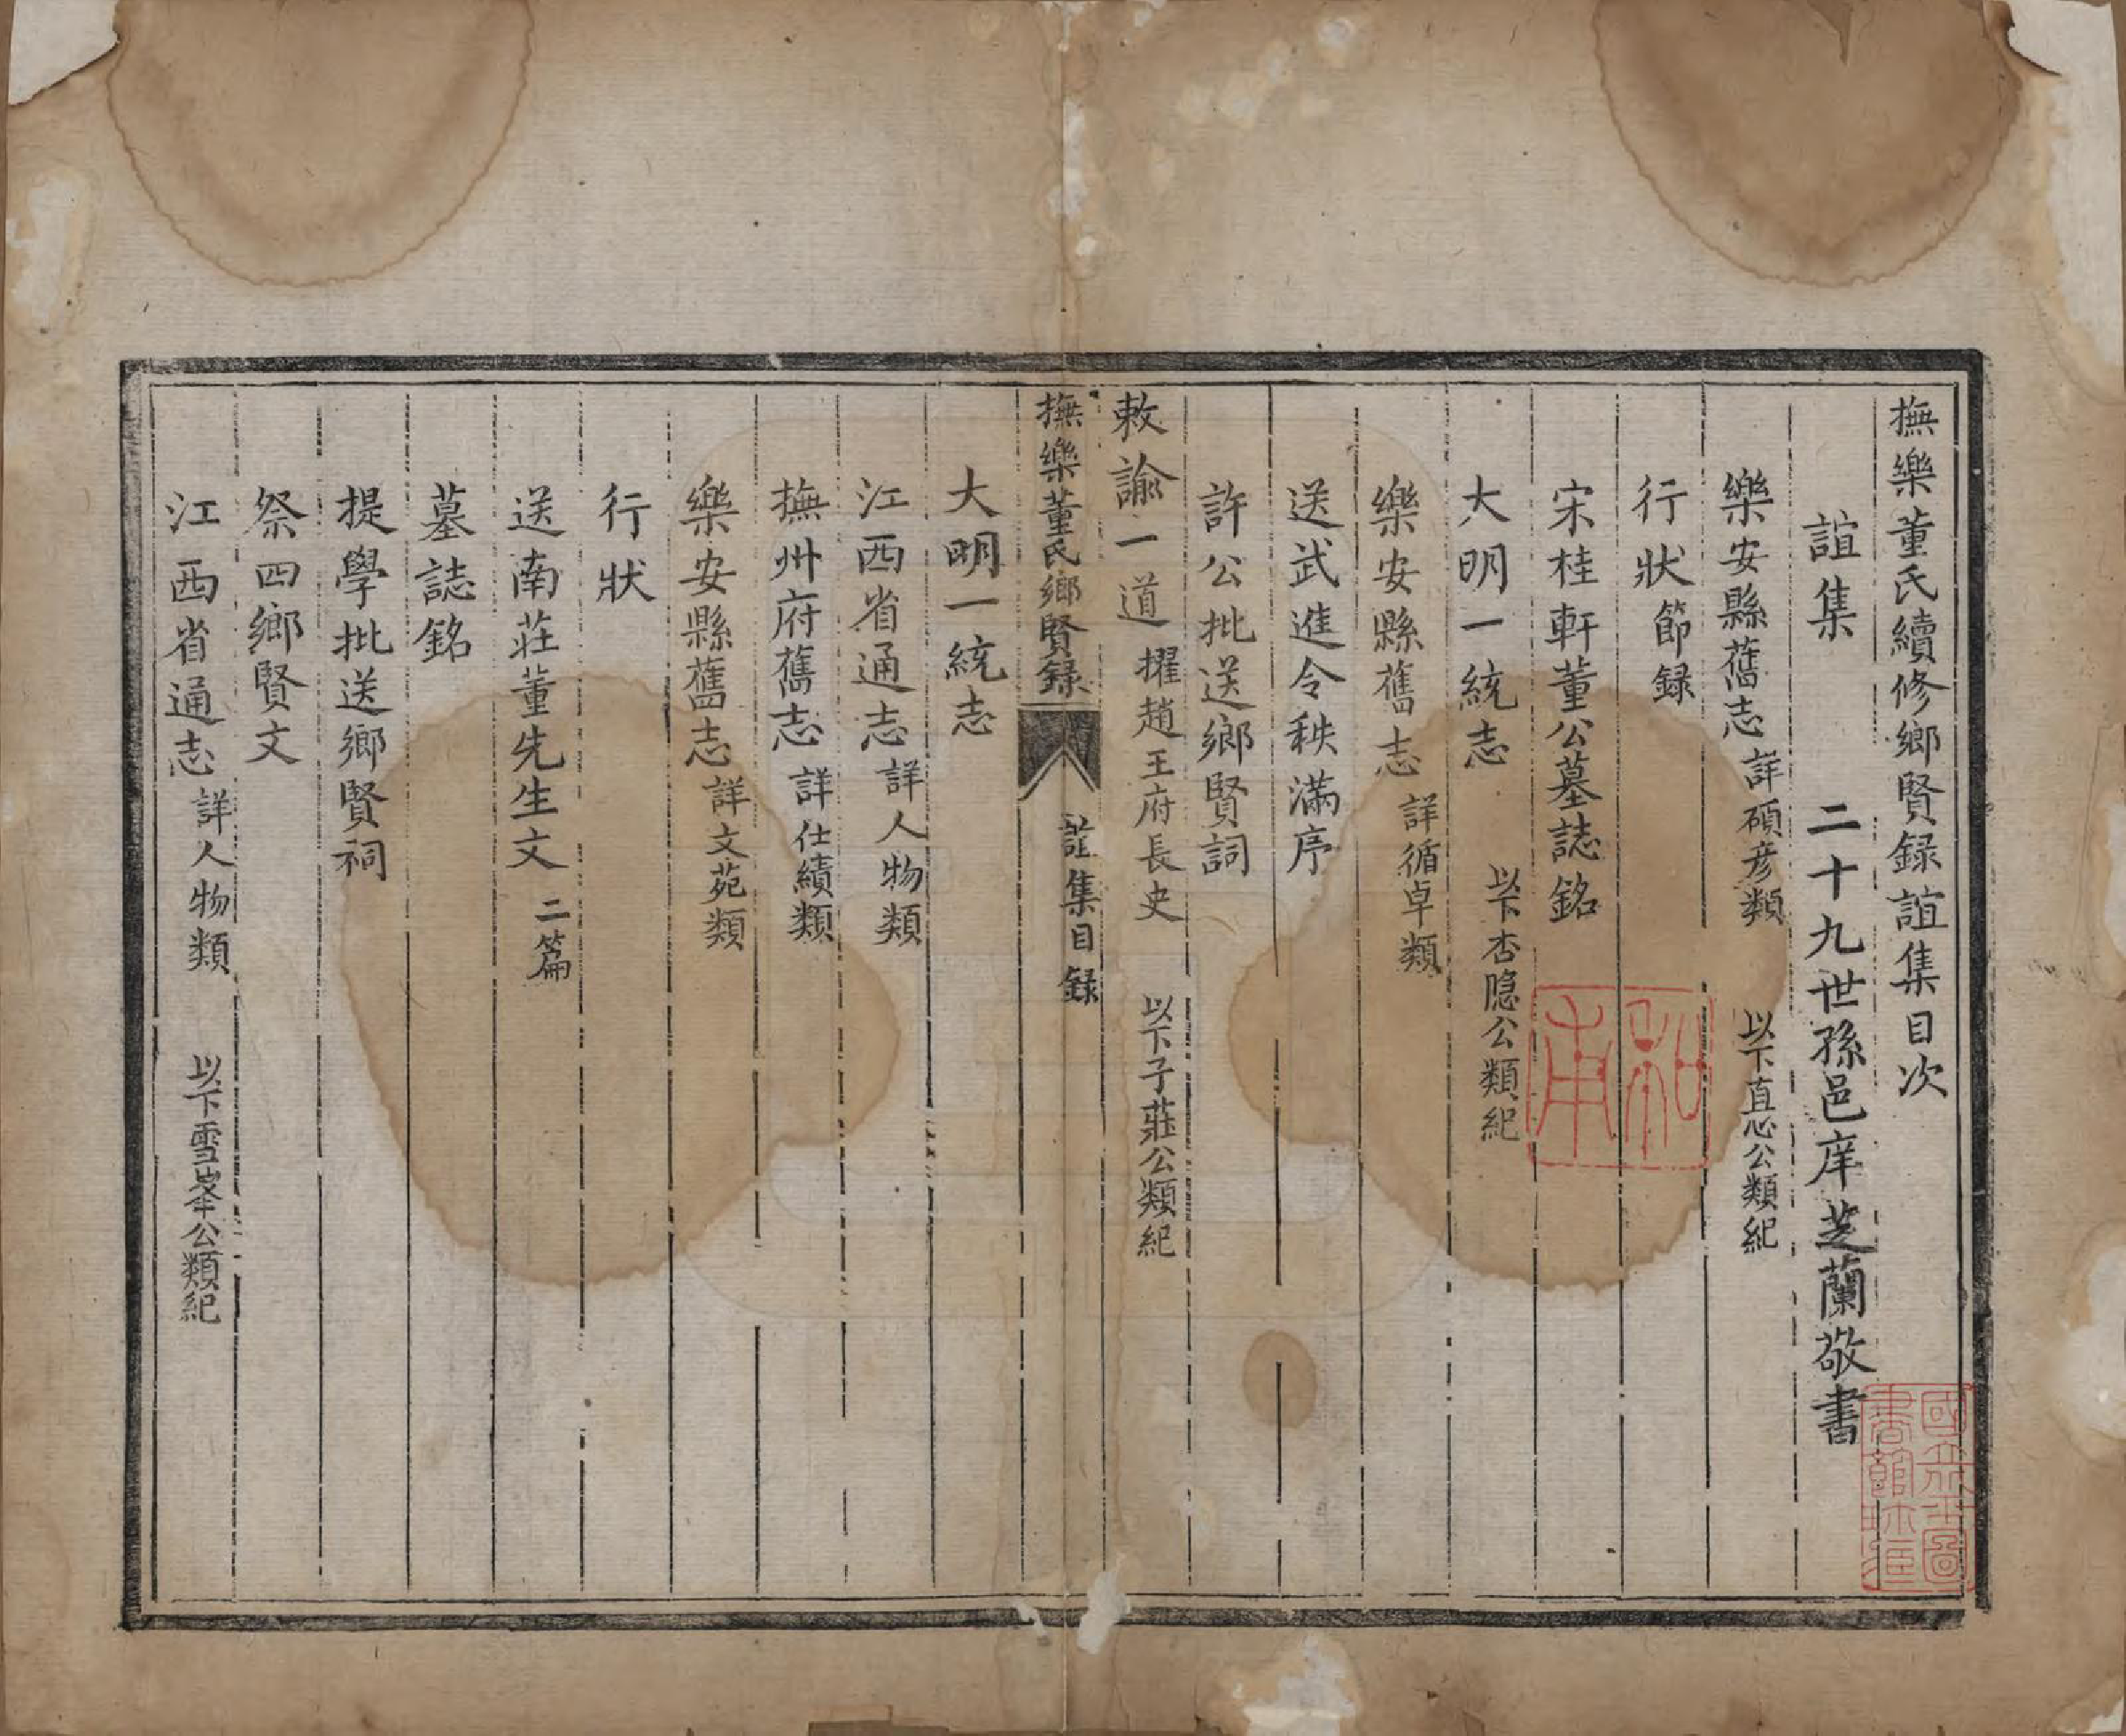 撫樂董氏續修鄉賢録誼集目次
誼集 二十九世孫邑庠芝蘭敬書
樂安縣舊志 詳碩彦類 以下直心公類紀
行狀節録
宋桂軒董公墓誌銘
大明一統志 以下杏隠公類紀
樂安縣舊志 詳循卓類
送武進令秩滿序
許公批送鄉賢詞
敕諭一道 擢趙王府長史 以下子莊公類紀
撫樂董氏鄉賢録 誼集目録
大明一統志
江西省通志 詳人物類
撫州府舊志 詳仕績類
樂安縣舊志 詳文苑類
行狀
送南莊董先生文 二篇
墓誌銘
提學批送鄉賢祠
祭四鄉賢文
江西省通志 詳人物類 以下雪峯公類紀